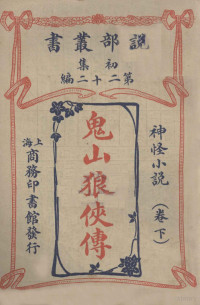 書叢部說
集初
編二十二第
神怪小說
（卷下）
鬼山狼俠傳
海上
商務印書館發行